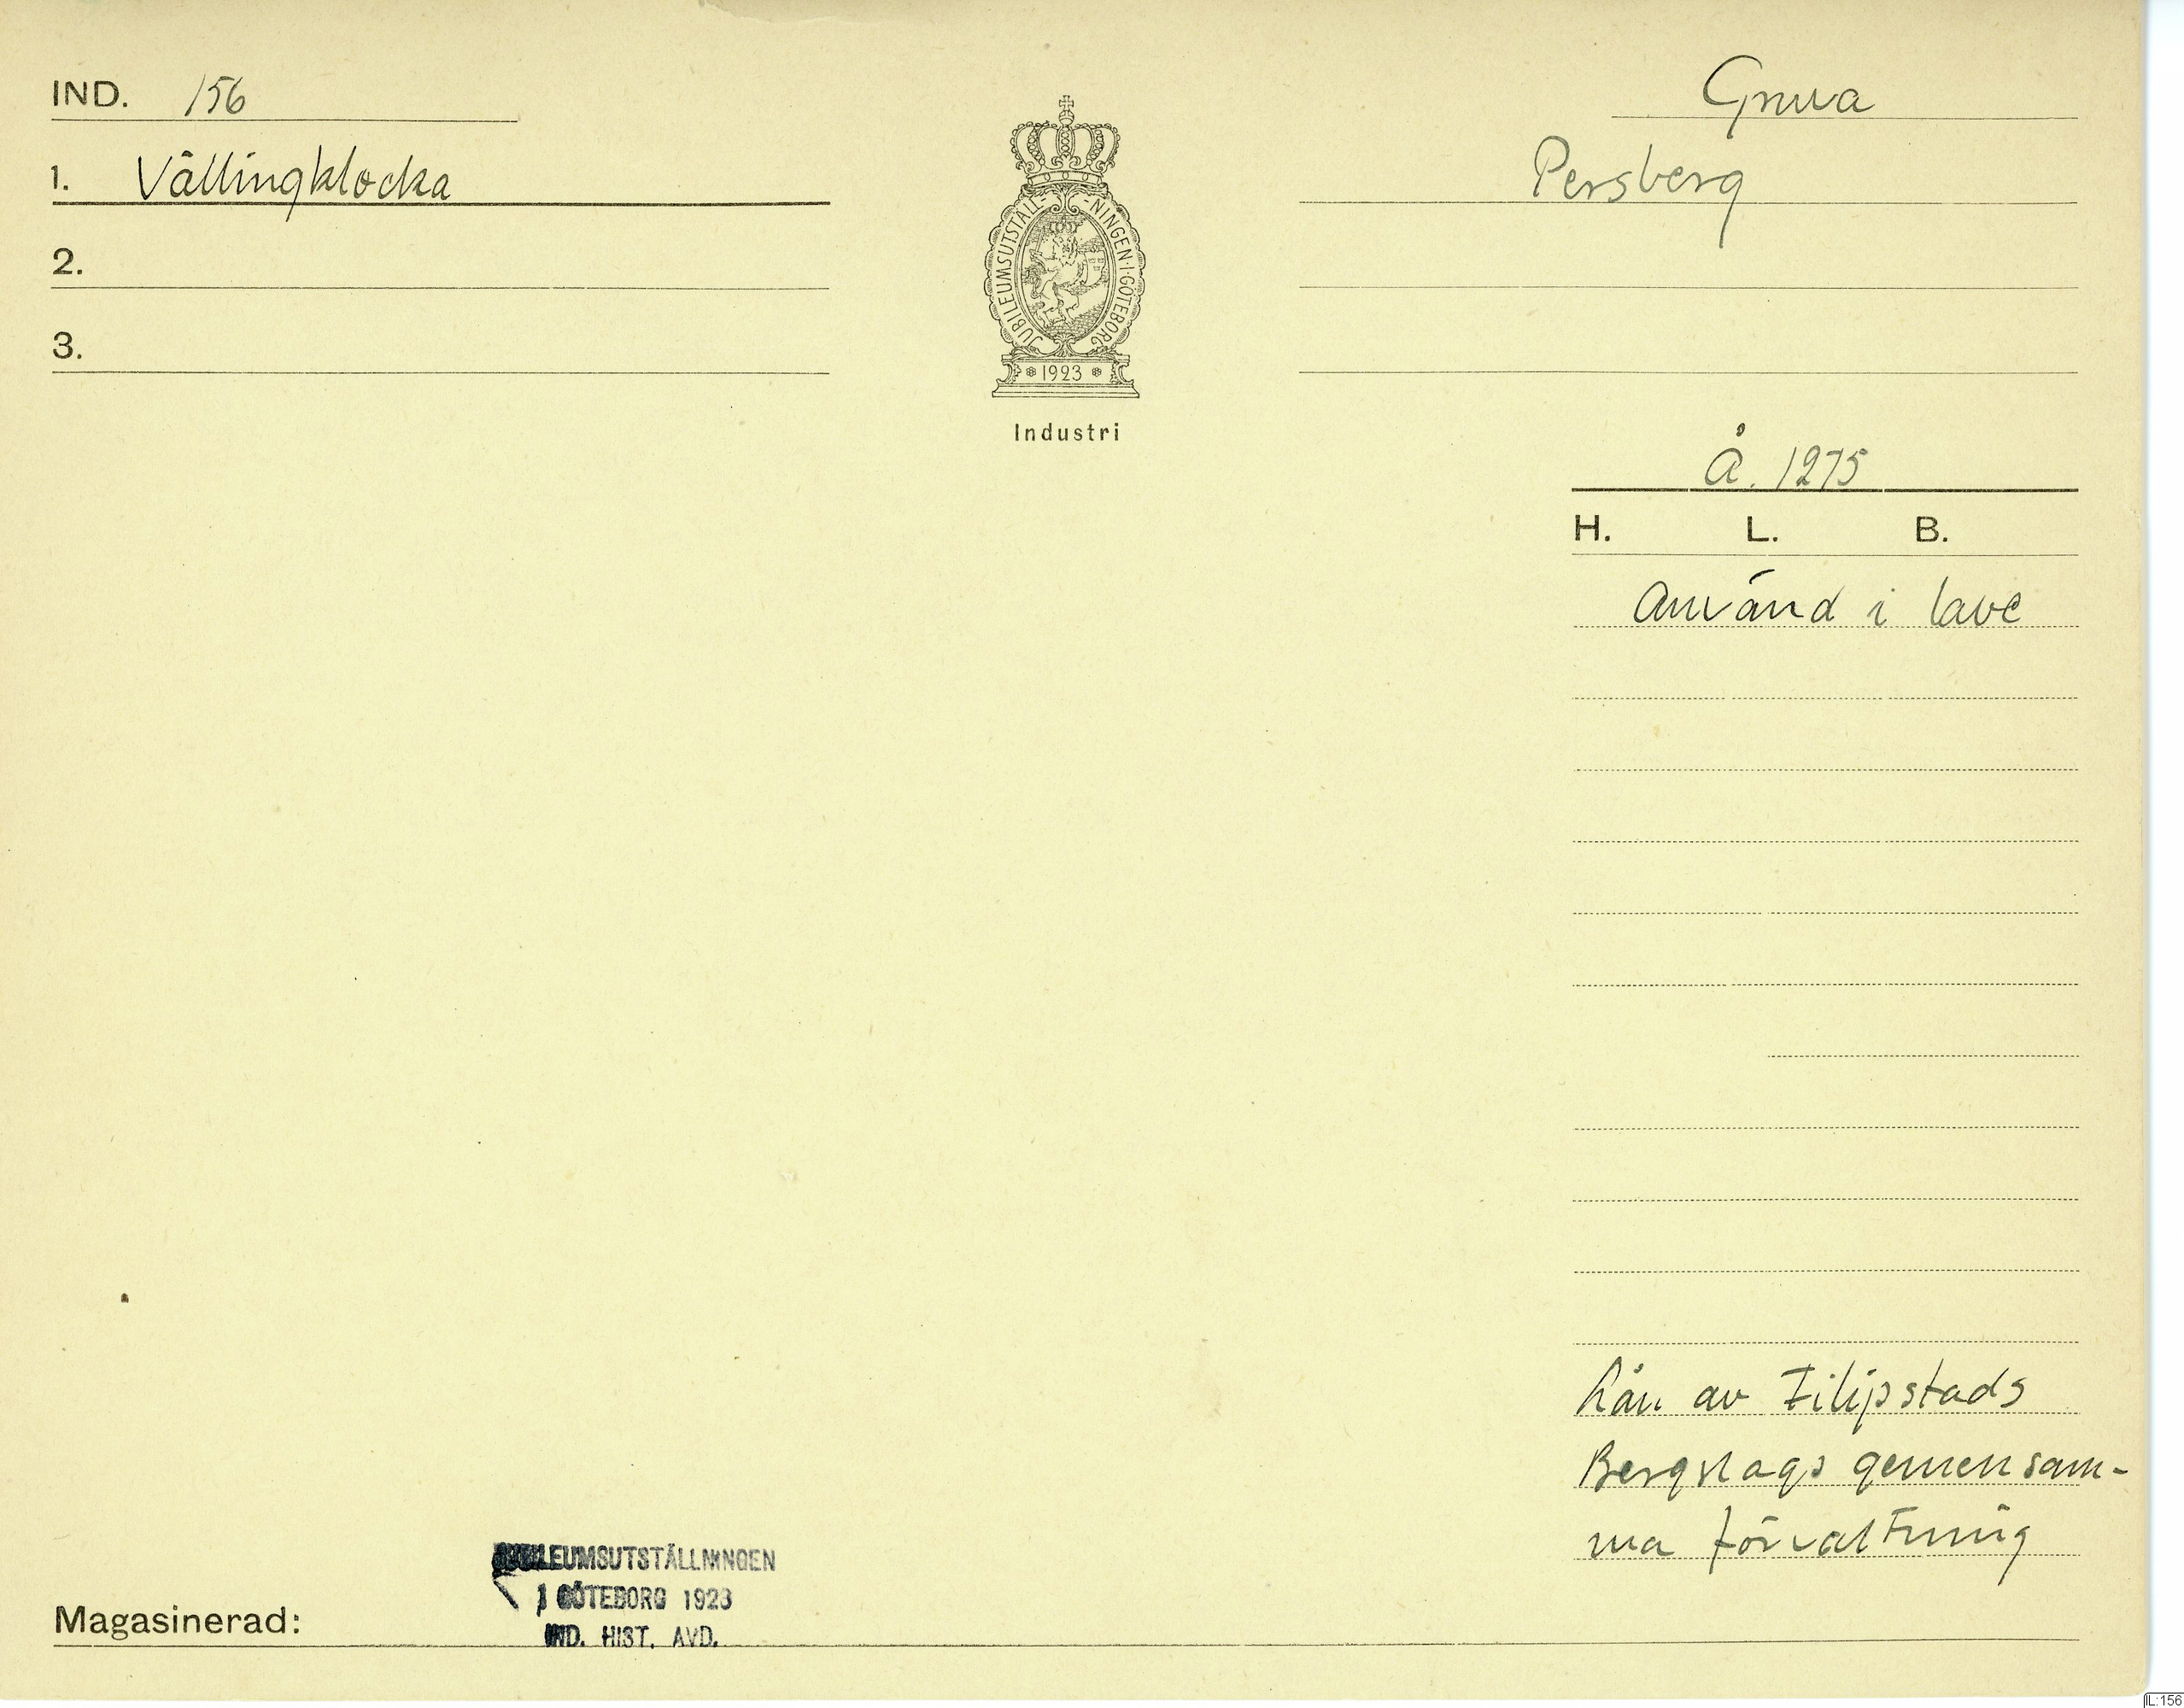 IND. 156
Gruva
1. Vällingklocka
Persberg
2.
3.
JUBILEUMSUTSTÄLL-NINGEN·I·GÖTEBORG
1923
Industri
Å. 1275
H. L. B.
Använd i lave
Lån av Filipstads
Bergslags gemensam-
ma förvaltning
JUBILEUMSUTSTÄLLNINGEN
I GÖTEBORG 1923
IND. HIST. AVD.
Magasinerad:
IL:156